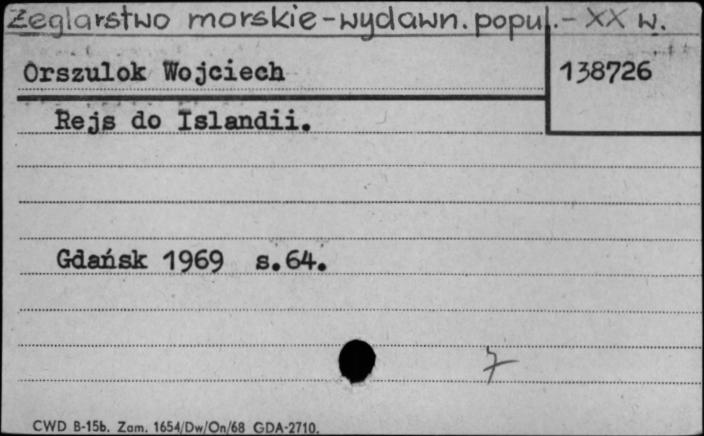 Żeglarstwo morskie-wydawn.popul.- XX w.
Orszulok Wojciech
138726
Rejs do Islandii.
Gdańsk 1969 s.64.
7
CWD B-15b. Zam. 1654/Dw/On/68 GDA-2710.